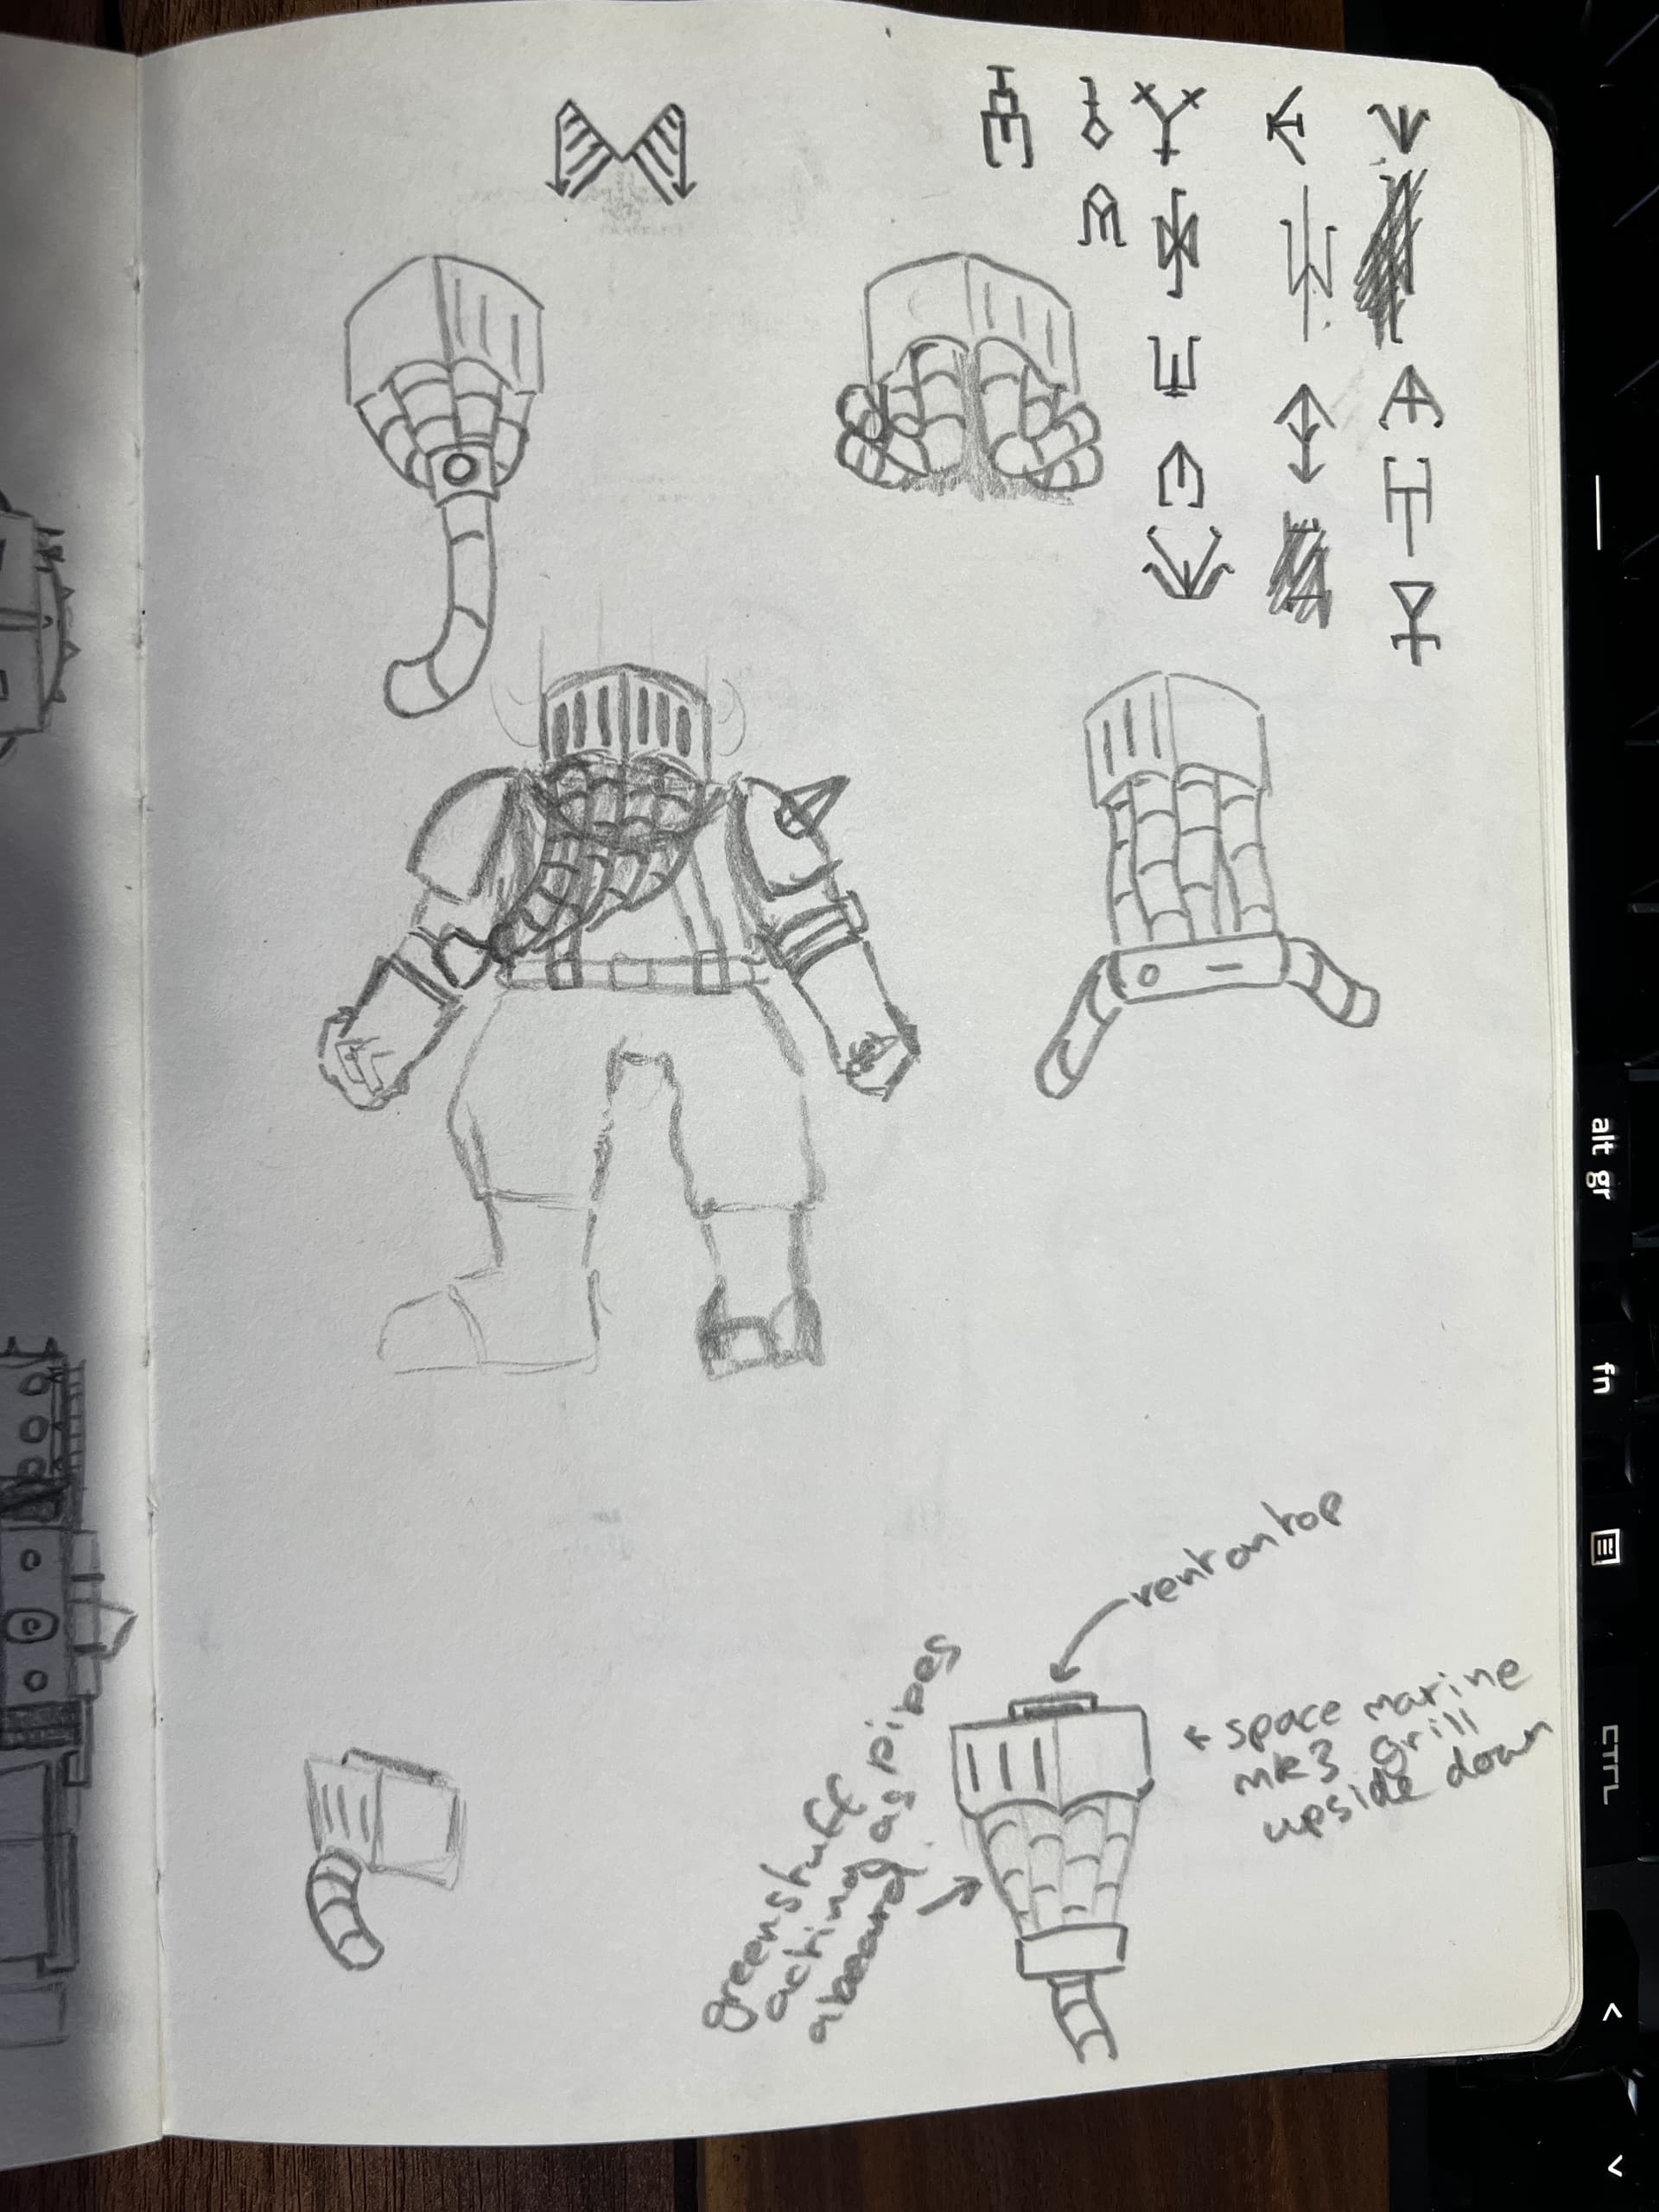 vent on top
← space marine
mk3 grill
upside down
greenstuff
acting as pipes
a beard
alt gr
fn
ctrl
<
<